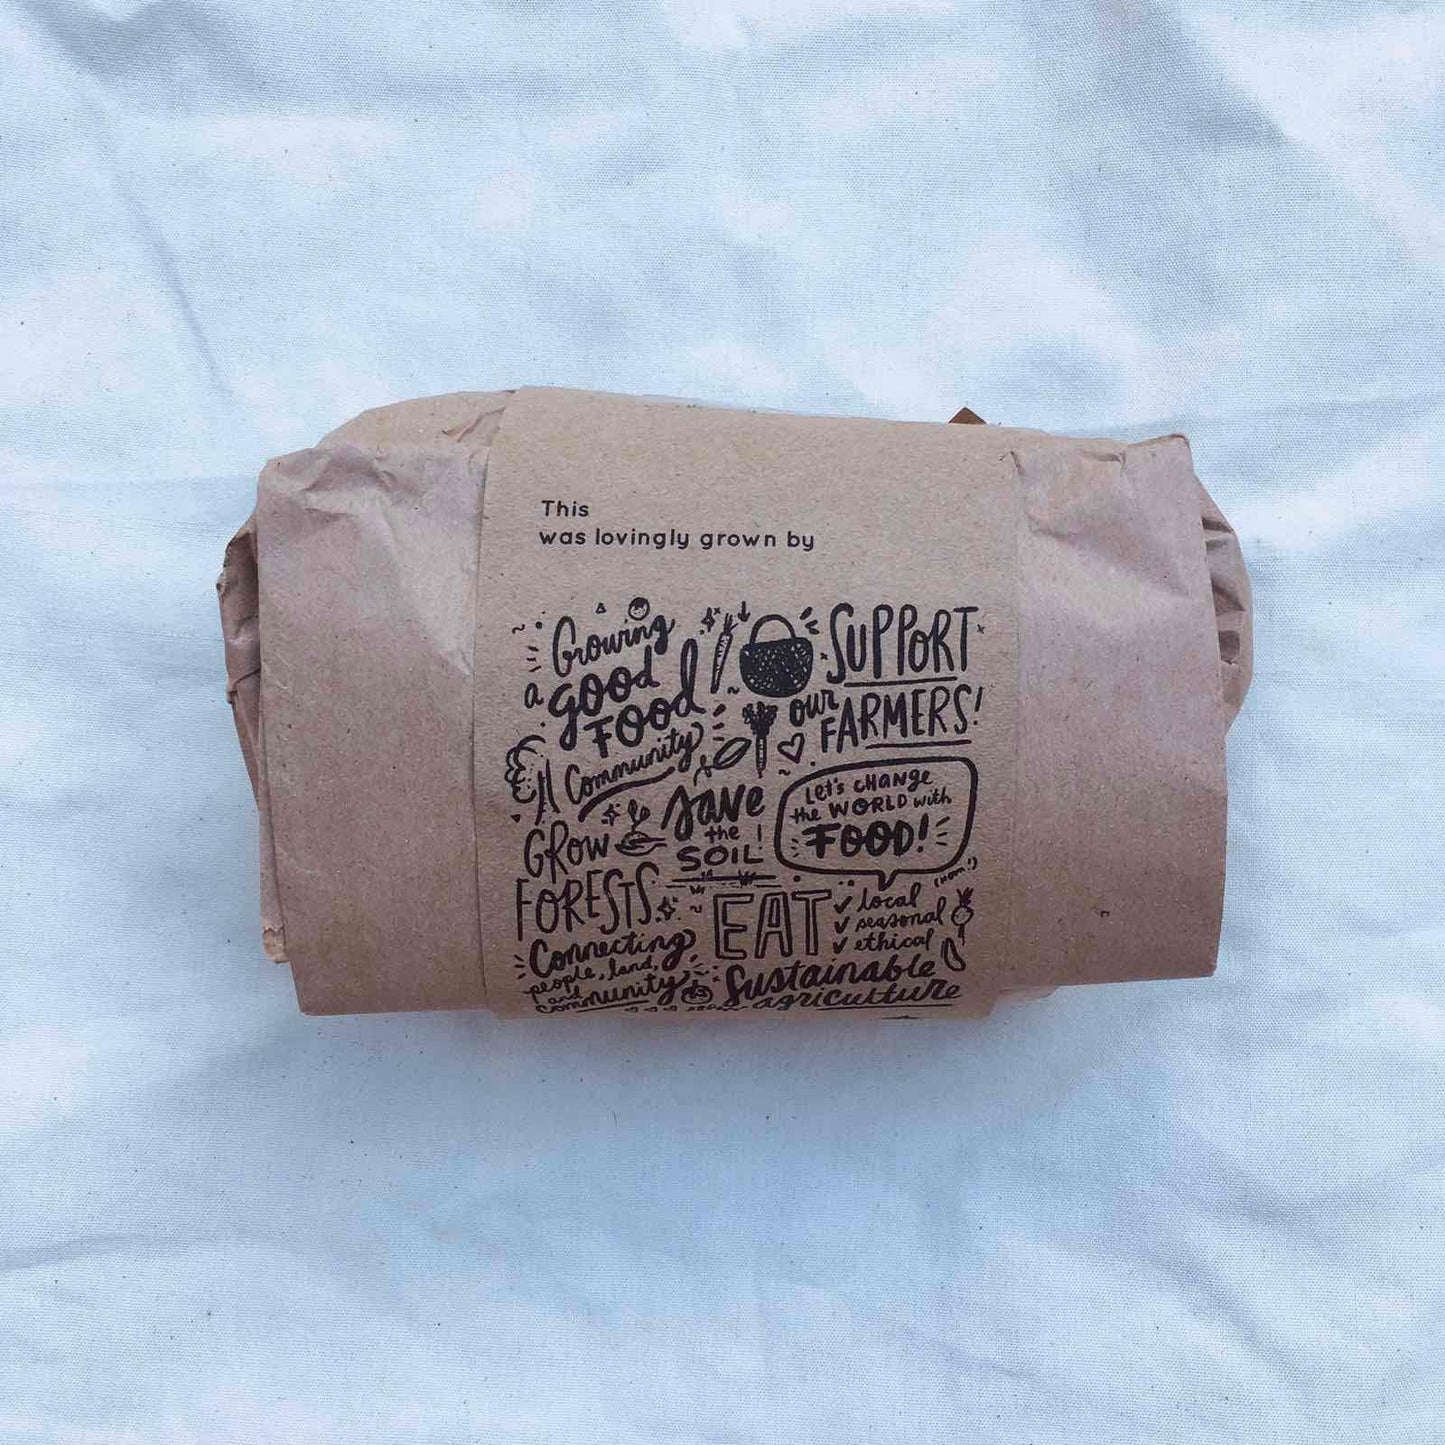 This
was lovingly grown by
Growing
a good
Food
Community
SUPPORT
our FARMERS!
Save
the
SOIL!
Let's CHANGE
the WORLD with
FOOD!
(nom!)
GROW
FORESTS
Connecting
people, land,
and
community
EAT
local
seasonal
ethical
Sustainable
agriculture